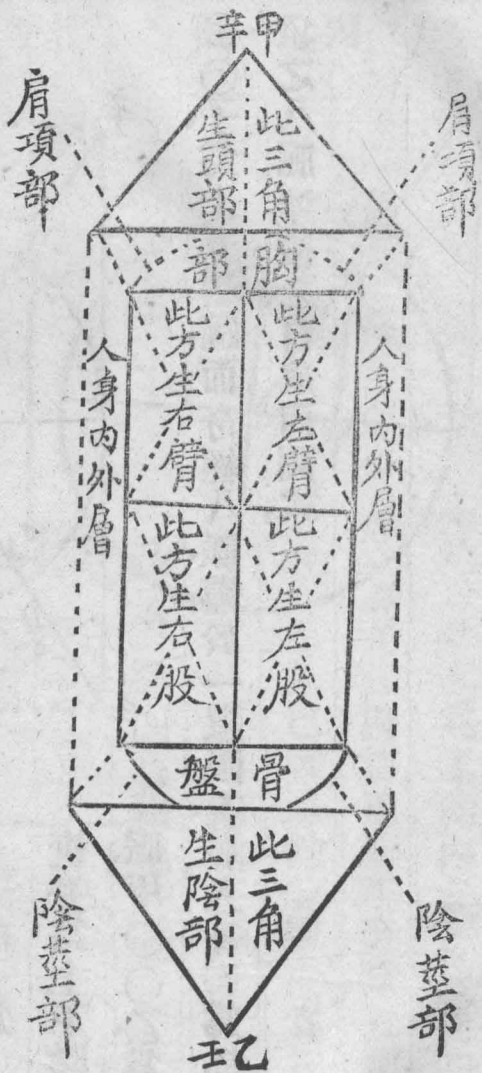 甲辛
肩項部
肩項部
此三角
生頭部
胸部
人身內外層
此方生左臂
此方生右臂
人身內外層
此方生左股
此方生右股
骨盤
此三角
生陰部
陰莖部
陰莖部
乙壬